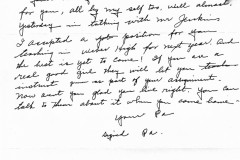 for you, all by my self too. Well almost.
Yesterday in talking with Mr Jenkins
I accepted a position for you
teaching in Weber High for next year. And
the best is yet to come! If you are a
real good girl they will let you
instruct as part of your assignment.
Now aren't you glad you live right. You can
talk to them about it when you come home-
Your Pa
Pa.